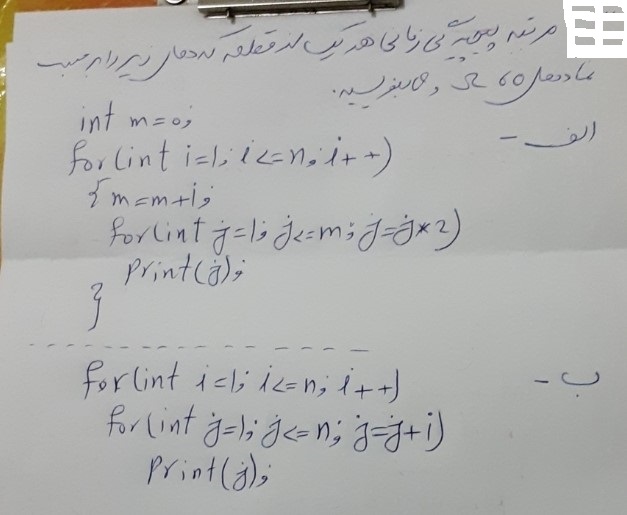 مرتبه پیچیدگی زمانی هر یک از قطعه کدهای زیر را بر حسب
نمادهای O، Ω و θ بنویسید.
الف -
int m=0;
for(int i=1; i<=n; i++)
{ m=m+i;
for(int j=1; j<=m; j=j*2)
print(j);
}
ب -
for(int i=1; i<=n; i++)
for(int j=1; j<=n; j=j+i)
print(j);